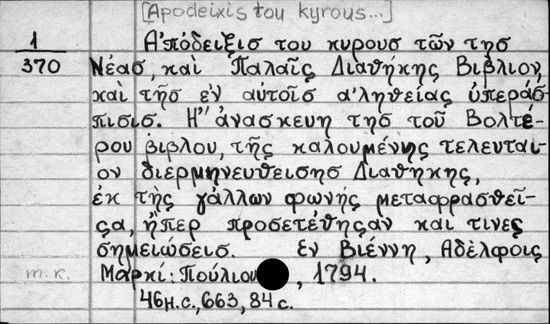 [Apodeixis tou kyrous...]
1 Ἀπόδειξισ του κυρουσ τῶν τησ
370 Νέασ, καὶ Παλαῖς Διαθήκης Βιβλιον,
καὶ τῆσ εν αὐτοῖσ ἀληθείας ὑπεράσ-
πισισ. Ἤ ἀνασκευη τησ τοῦ Βολτέ-
ρου βιβλου, τῆς καλουμένης τελευταί-
ον διερμηνευθεισησ Διαθήκης,
ἐκ τὴς γάλλων φωνής μεταφρασθεῖ-
ςα, ἥπερ προσετέθηςαν και τινες
σημειώσεισ. Εν Βιέννη, Αδέλφοις
m.k. Μαρκί: Πούλιου, 1794.
46н.с., 663, 84 с.